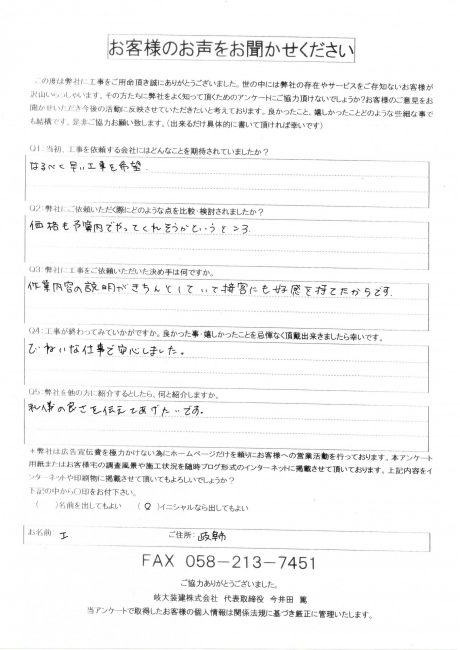 お客様のお声をお聞かせください
この度は弊社に工事をご用命頂き誠にありがとうございました。世の中には弊社の存在やサービスをご存知ないお客様が
沢山いらっしゃいます。その方たちに弊社をよく知って頂くためのアンケートにご協力頂けないでしょうか?お客様のご意見をお
聞かせいただき今後の活動に反映させていただきたいと考えております。良かったこと、嬉しかったことどのような些細な事で
も結構です。是非ご協力お願い致します。(出来るだけ具体的に書いて頂ければ幸いです)
Q1:当初、工事を依頼する会社にはどんなことを期待されていましたか?
なるべく早い工事を希望
Q2:弊社にご依頼いただく際にどのような点を比較・検討されましたか?
価格も予算内でやってくれそうかというところ
Q3:弊社に工事をご依頼いただいた決め手は何ですか。
作業内容の説明がきちんとしていて接客にも好感を持てたからです。
Q4:工事が終わってみていかがですか。良かった事・嬉しかったことを忌憚なく頂戴出来きましたら幸いです。
ていねいな仕事で安心しました。
Q5:弊社を他の方に紹介するとしたら、何と紹介しますか。
の良さを伝えてあげたいです。
*弊社は広告宣伝費を極力かけない為にホームページだけを頼りにお客様への営業活動を行っております。本アンケート
用紙またはお客様宅の調査風景や施工状況を随時ブログ形式のインターネットに掲載させて頂いております。上記内容をイ
ンターネットや印刷物に掲載させて頂いてもよろしいでしょうか?
下記の中から〇印をお付下さい。
( )名前を出してもよい (〇)イニシャルなら出してもよい
お名前: I ご住所: 岐阜市
FAX 058-213-7451
ご協力ありがとうございました。
岐大装建株式会社 代表取締役 今井田 篤
当アンケートで取得したお客様の個人情報は関係法規に基づき厳正に管理いたします。